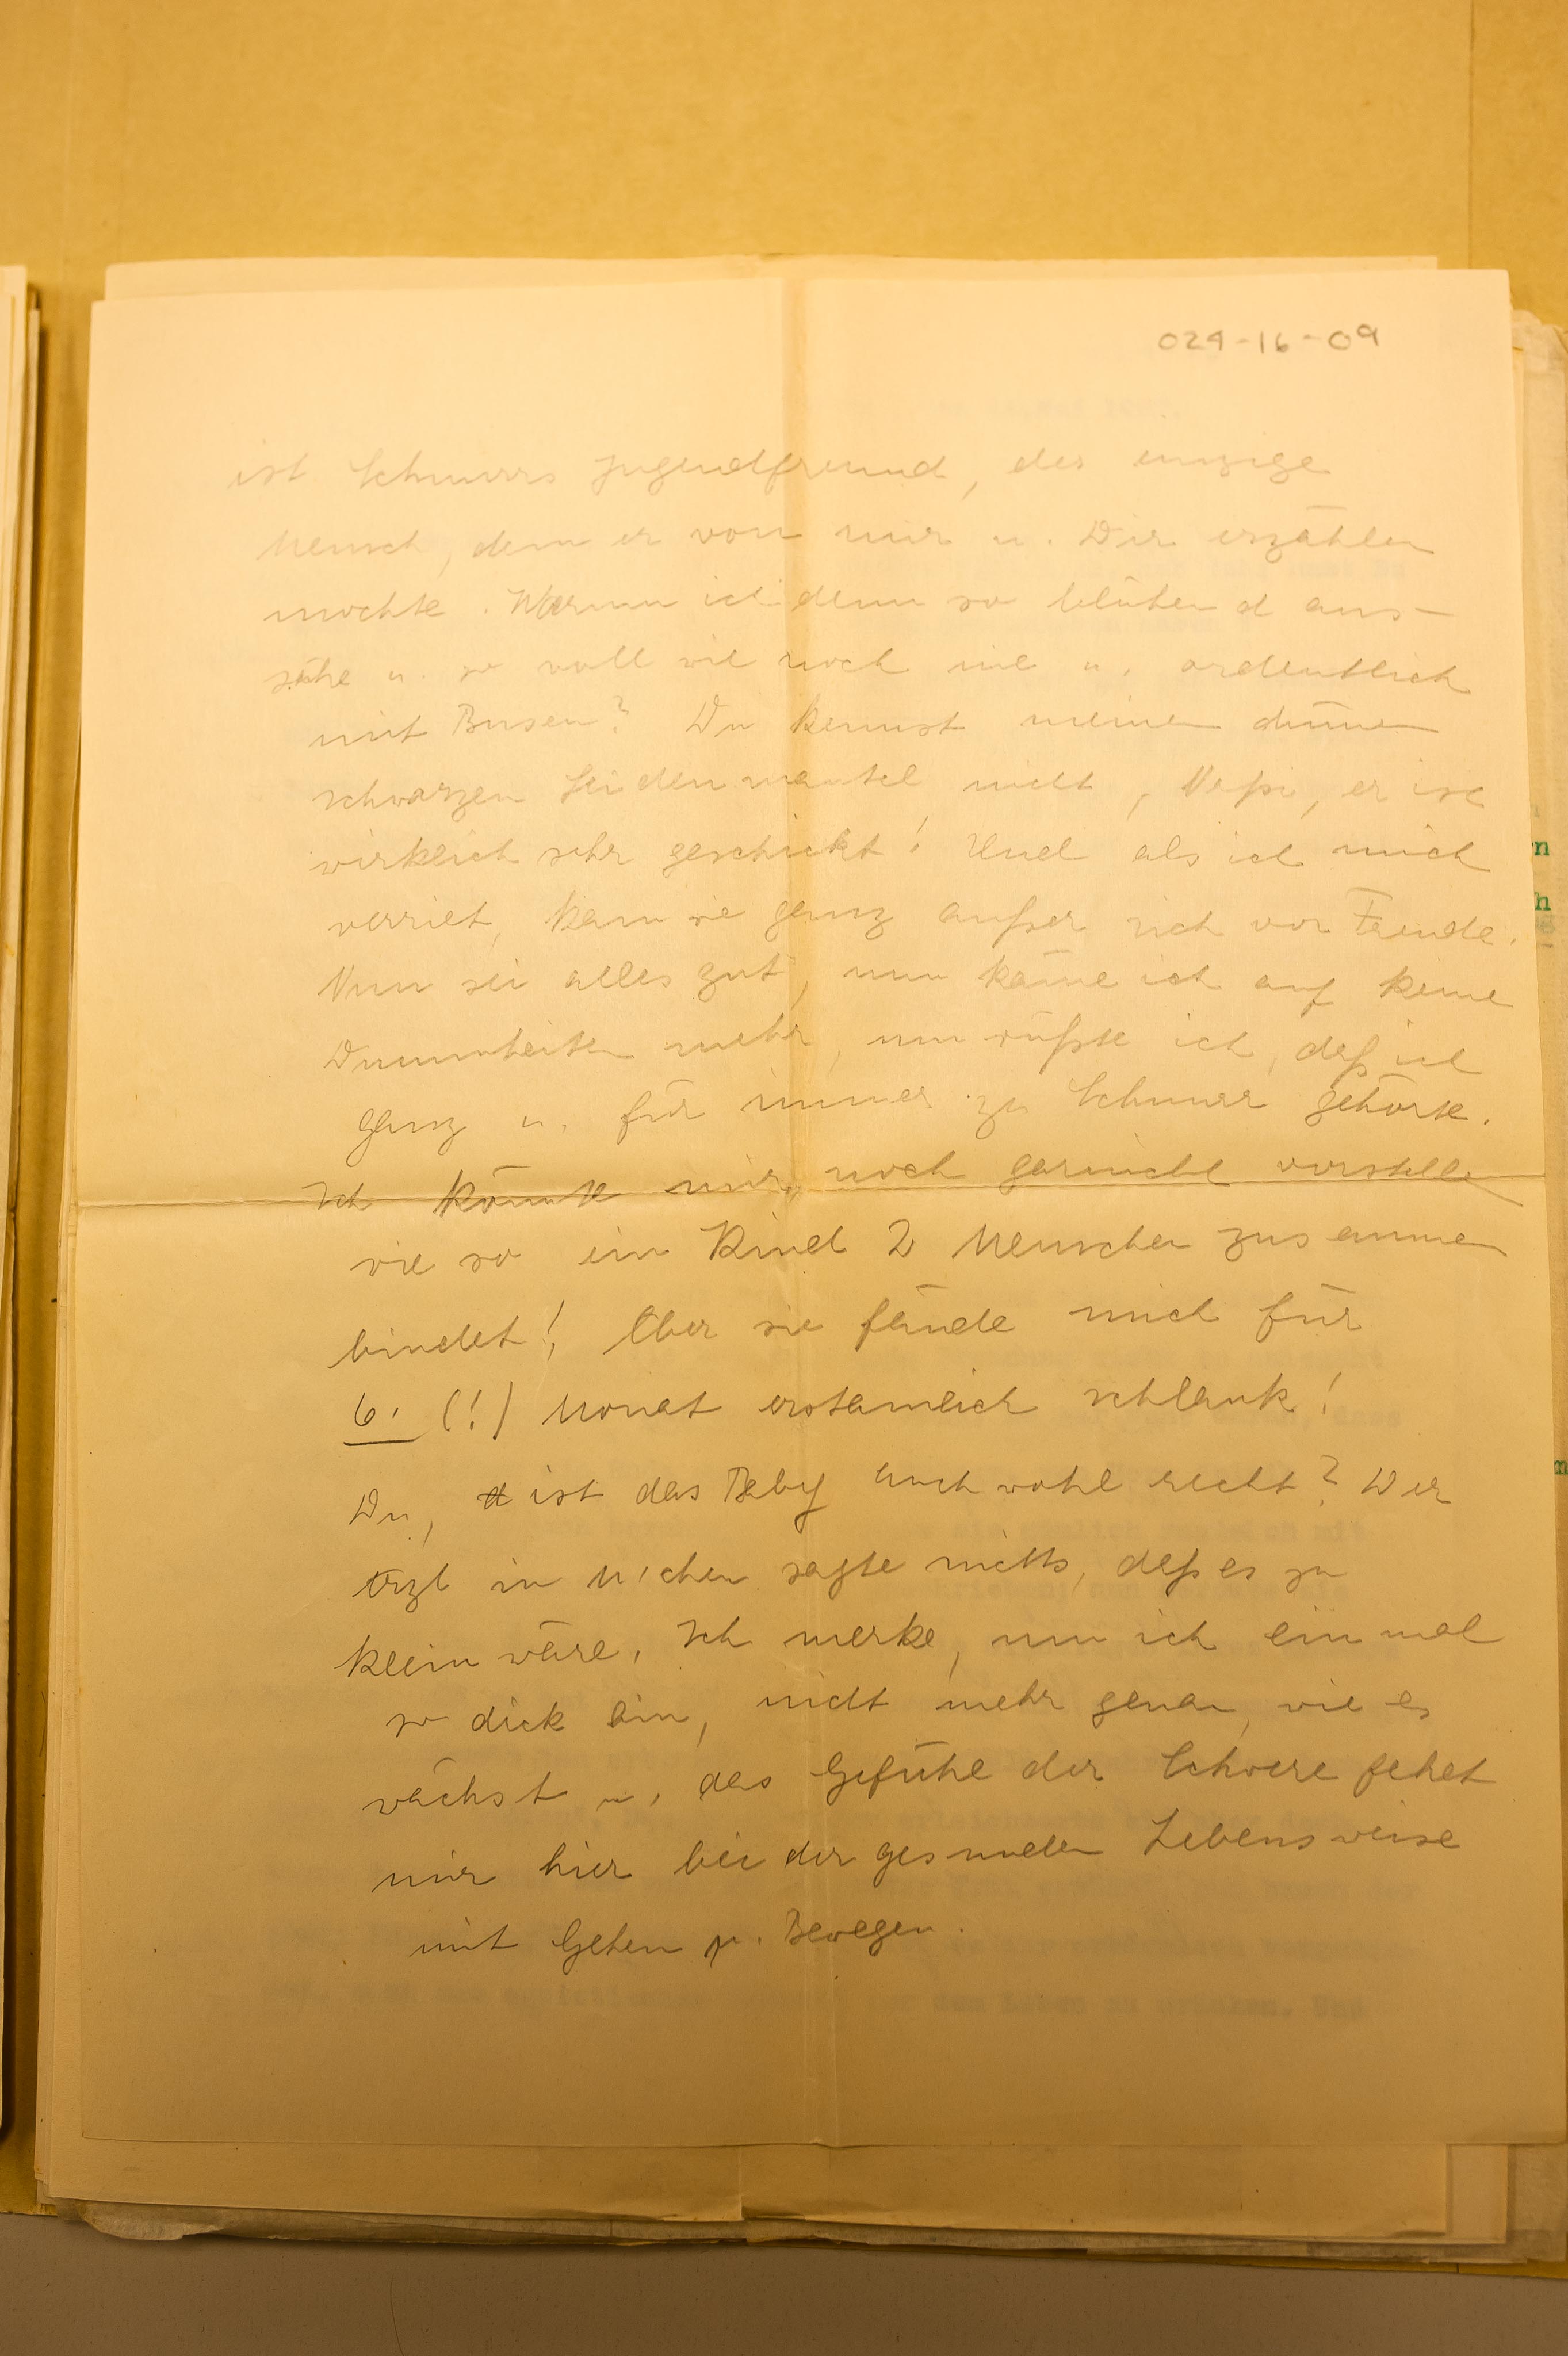 029-16-09
ist Schnurrs Jugendfreund, der einzige
Mensch, dem er von mir u. Dir erzählen
mochte. Warum ich denn so blühend aus-
sähe u. so voll wie noch nie u. ordentlich
mit Busen? Du kennst meinen dünnen
schwarzen Seidenmantel nicht, er ist
wirklich sehr geschickt! Und als ich mich
verriet, kam sie ganz außer sich vor Freude.
Nun sei alles gut, nun käme ich auf keine
Dummheiten mehr, nun wüßte ich, daß ich
ganz u. für immer zu Schnurr gehörte.
Ich könnte mir noch garnicht vorstellen
wie so ein Kind 2 Menschen zusammen
bindet! Aber sie fände mich für
6. (!) Monat erstaunlich schlank!
Du, ist das Baby auch wohl recht? Der
Arzt in sagte nichts, daß es zu
klein wäre. Ich merke, nun ich einmal
so dick bin, nicht mehr genau, wie es
wächst u. das Gefühl der Schwere fehlt
mir hier bei der gesunden Lebensweise
mit Gehen u. Bewegen.
n
h
m